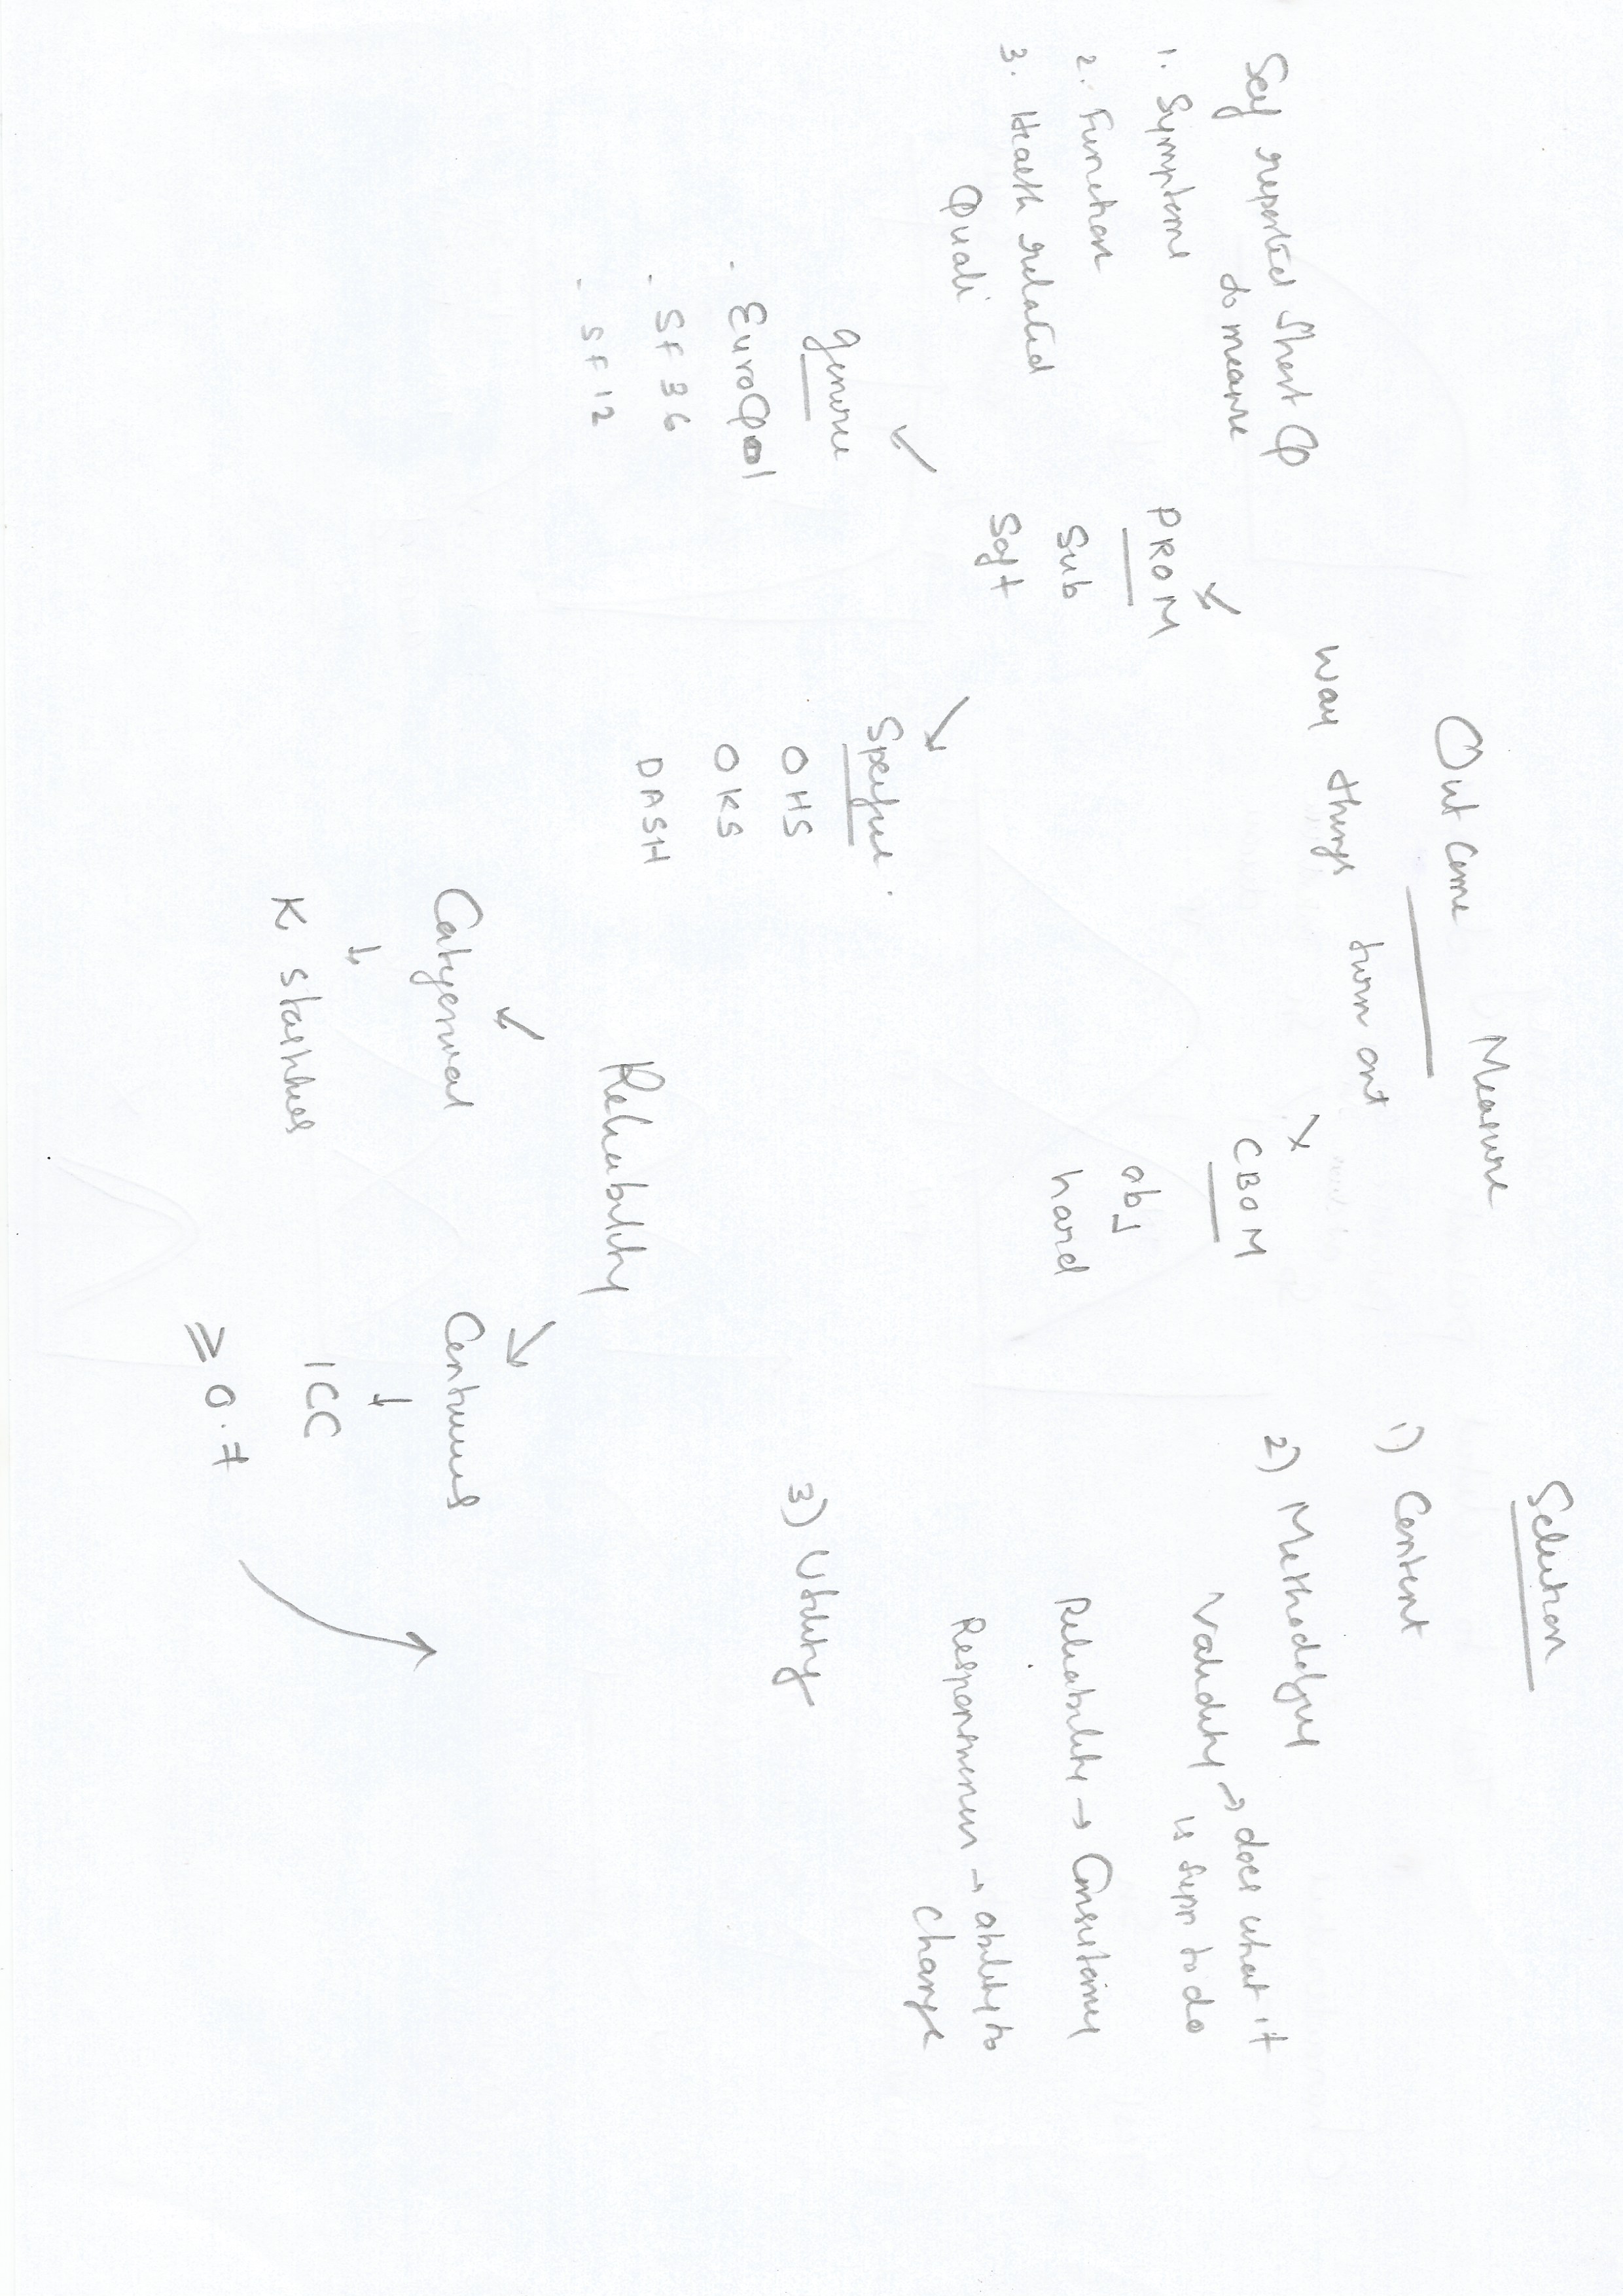 Out Come Measure
way things turn out
Self reported Short Q
to measure
1. Symptoms
2. Function
3. Health related
Quali
PROM
Sub
Soft
CBOM
obj
hard
Generic
- EuroQol
- SF 36
- SF 12
Specific
OHS
OKS
DASH
Selection
1) Content
2) Methodology
Validity → does what it
is supp to do
Reliability → Consistancy
Responsiveness → ability to
change
3) Utility
Reliability
Categorical
↓
K statistics
Continuous
↓
ICC
≥ 0.7